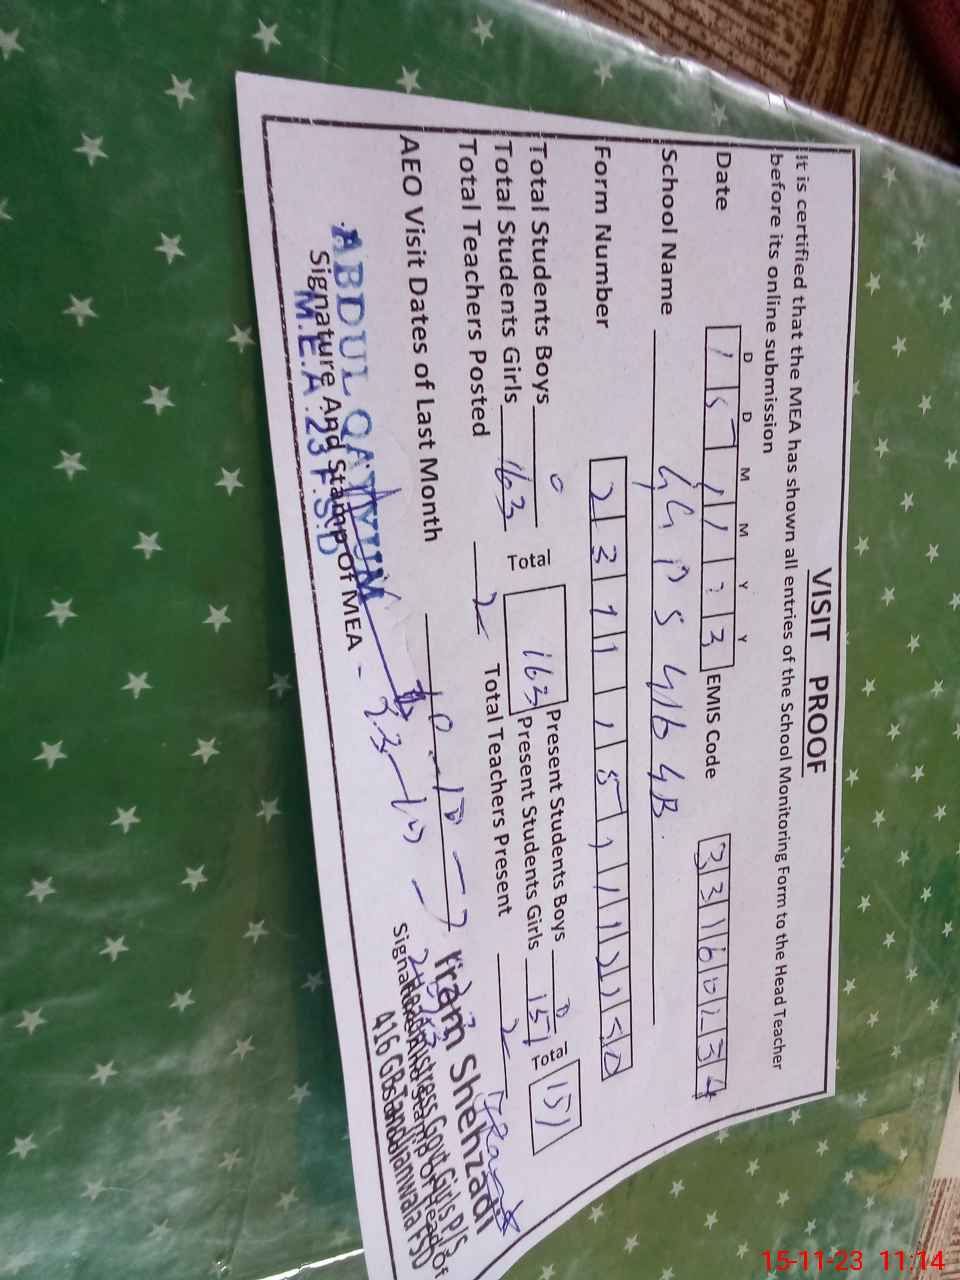 VISIT PROOF
It is certified that the MEA has shown all entries of the School Monitoring Form to the Head Teacher
before its online submission
D D M M Y Y
Date 15 11 23 EMIS Code 33160234
School Name GGPS 416 GB.
Form Number
Total Students Boys 0 Total 163 Present Students Boys 0 Total 151
Total Students Girls 163 Present Students Girls 151
Total Teachers Posted 2 Total Teachers Present 2
AEO Visit Dates of Last Month
ABDUL QAYYUM
Signature And Stamp Of MEA
M.E.A 23 F.S.D
Iram Shehzadi
Headmistress Govt Girls P/S
416 GB Tandlianwala FSD
15-11-23 11:14